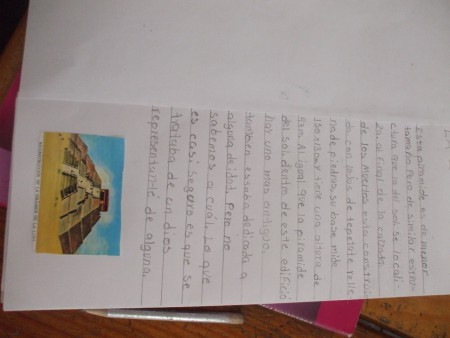 LA
Esta piramide es de menor
tamaño pero de similar estru-
ctura que la del sol se locali-
za al final de la calzada
de los Muertos esta construi-
da con talus de tepetate relle
na de piedras, su base mide
150x150m y tiene una altura de
43m. Al igual que la piramide
del sol, dentro de este edificio
hay uno mas antiguo.
tambien estaba dedicada a
alguna deidad, pero no
sabemos a cuál. Lo que
es casi seguro es que se
trataba de un dios
representante de alguna.